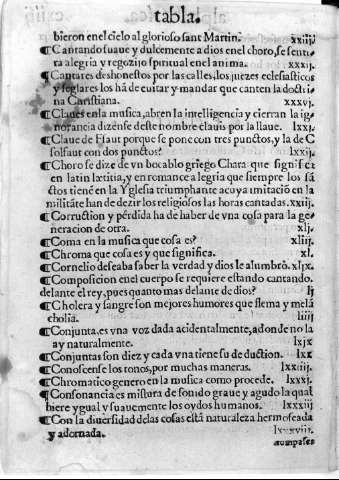 tabla.
bieron en el cielo al glorioso sant Martin. xxiiij.
¶Cantando suaue y dulcemente a dios en el choro, se senti
ra alegria y regozijo spiritual en el anima. xxxij.
¶Cantares deshonestos por las calles, los juezes eclesiasticos
y seglares los hã de euitar y mandar que canten la doctri
na Christiana. xxxvj.
¶Claues en la musica, abren la intelligencia y cierran la ig-
norancia dizense deste nombre clauis por la llaue. lxxj.
¶Claue de Ffaut porque se pone con tres punctos, y la de C
solfaut con dos punctos? lxxij.
¶Choro se dize de vn bocablo griego Chara que significa
en latin lætitia, y en romance alegria que siempre los sã
ctos tienẽ en la Yglesia triumphante acuya imitaciõ en la
militãte han de dezir los religiosos las horas cantadas. xxij.
¶Corruction y pérdida ha de haber de vna cosa para la ge-
neracion de otra. xlj.
¶Coma en la musica que cosa es? xliij.
¶Chroma que cosa es y que significa. xl.
¶Cornelio deseaba saber la verdad y dios le alumbrò. xlix.
¶Composicion en el cuerpo se requiere estando cantando.
delante el rey, pues quanto mas delante de dios? lj
¶Cholera y sangre son mejores humores que flema y melã
cholia. liiij
¶Conjunta, es vna voz dada acidentalmente, adonde no la
ay naturalmente. lxix
¶Conjuntas son diez y cada vna tiene su deduction. lxx
¶Conoscense los tonos, por muchas maneras. lxxiiij.
¶Chromatico genero en la musica como procede. lxxxj.
¶Consonancia es mistura de sonido graue y agudo la qual
hiere ygual y suauemente los oydos humanos. lxxxiij.
¶Con la diuersidad de las cosas està naturaleza hermoseada
y adornada. lxxxviij.